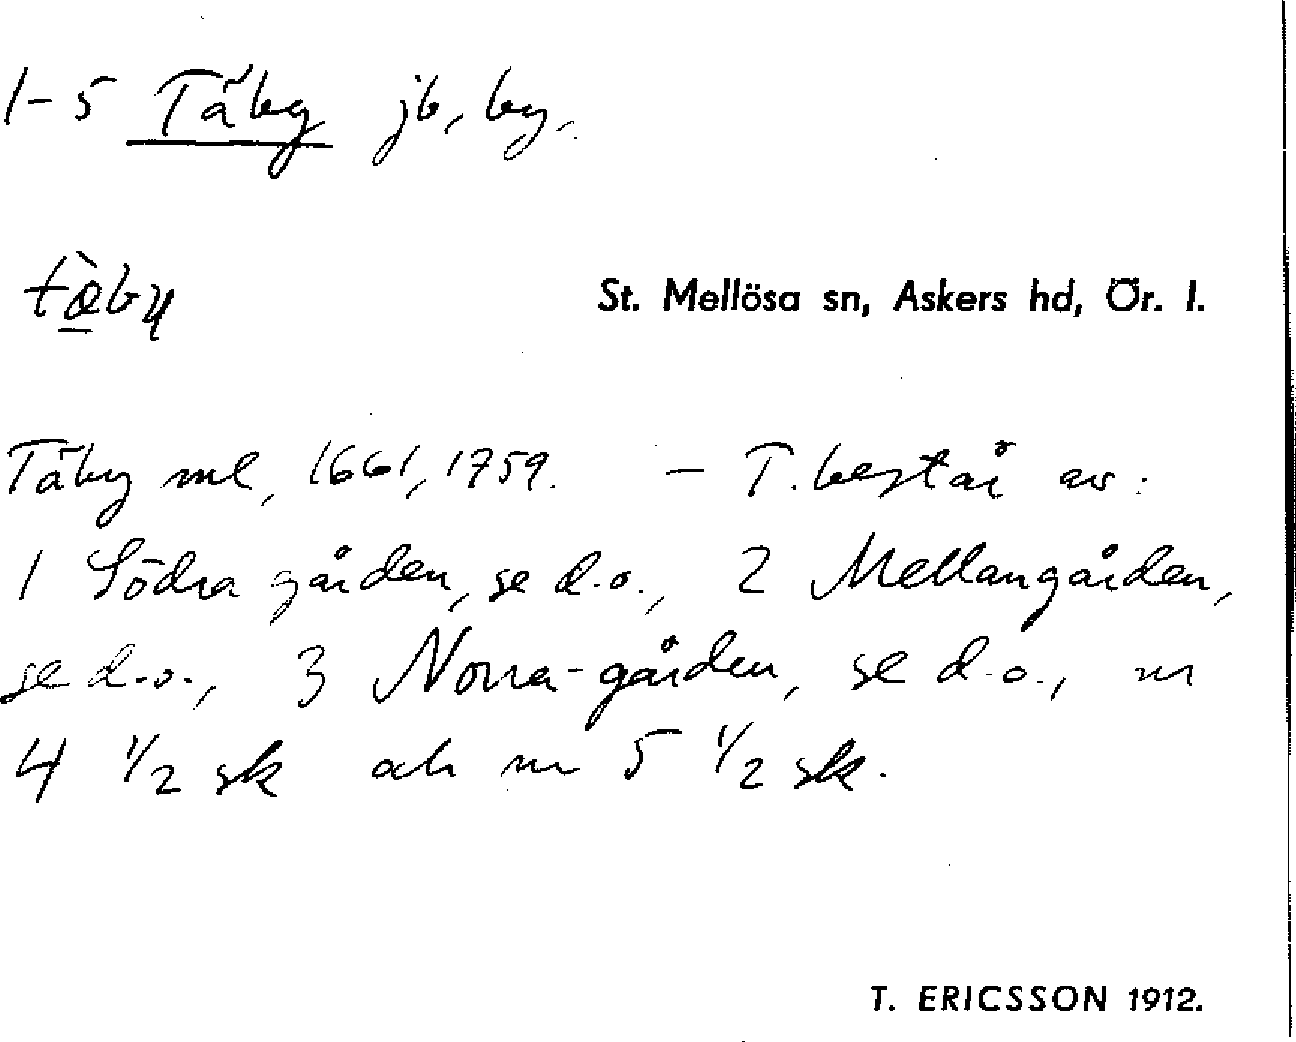 1-5 Täby jb, by.
tæ̀by
St. Mellösa sn, Askers hd, Ör. l.
Täby ml, 1661, 1759. – T. består av:
1 Södra gården, se d.o., 2 Mellangården,
se d.o., 3 Norra-gården, se d.o., nr
4 1/2 sk och nr 5 1/2 sk.
T. ERICSSON 1912.